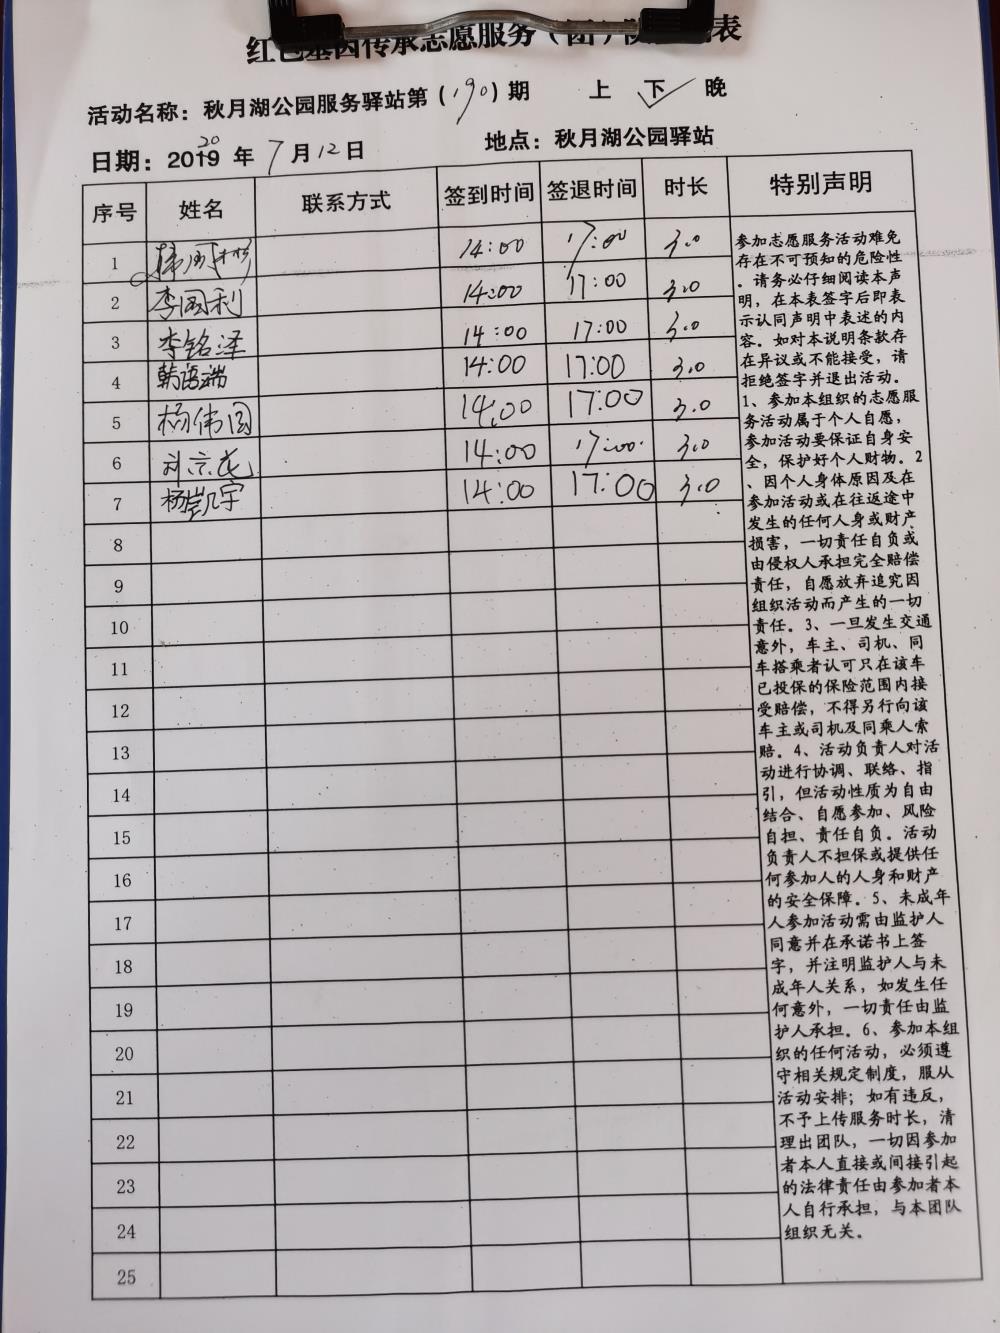 红色基因传承志愿服务（团）
活动名称：秋月湖公园服务驿站第（190）期 上 下✓ 晚
日期：2019 20 年 7月12日 地点：秋月湖公园驿站
序号 姓名 联系方式 签到时间 签退时间 时长 特别声明
1 14:00 17:00 3.0
2 李国利 14:00 17:00 3.0
3 李铭泽 14:00 17:00 3.0
4 韩语端 14:00 17:00 3.0
5 杨伟国 14:00 17:00 3.0
6 刘京花 14:00 17:00 3.0
7 杨凯宇 14:00 17:00 3.0
8
9
10
11
12
13
14
15
16
17
18
19
20
21
22
23
24
25
参加志愿服务活动难免
存在不可预知的危险性
。请务必仔细阅读本声
明，在本表签字后即表
示认同声明中表述的内
容。如对本说明条款存
在异议或不能接受，请
拒绝签字并退出活动。
1、参加本组织的志愿服
务活动属于个人自愿，
参加活动要保证自身安
全，保护好个人财物。2
、因个人身体原因及在
参加活动或在往返途中
发生的任何人身或财产
损害，一切责任自负或
由侵权人承担完全赔偿
责任，自愿放弃追究因
组织活动而产生的一切
责任。3、一旦发生交通
意外，车主、司机、同
车搭乘者认可只在该车
已投保的保险范围内接
受赔偿，不得另行向该
车主或司机及同乘人索
赔。4、活动负责人对活
动进行协调、联络、指
引，但活动性质为自由
结合、自愿参加、风险
自担、责任自负。活动
负责人不担保或提供任
何参加人的人身和财产
的安全保障。5、未成年
人参加活动需由监护人
同意并在承诺书上签
字，并注明监护人与未
成年人关系，如发生任
何意外，一切责任由监
护人承担。6、参加本组
织的任何活动，必须遵
守相关规定制度，服从
活动安排；如有违反，
不予上传服务时长，清
理出团队，一切因参加
者本人直接或间接引起
的法律责任由参加者本
人自行承担，与本团队
组织无关。